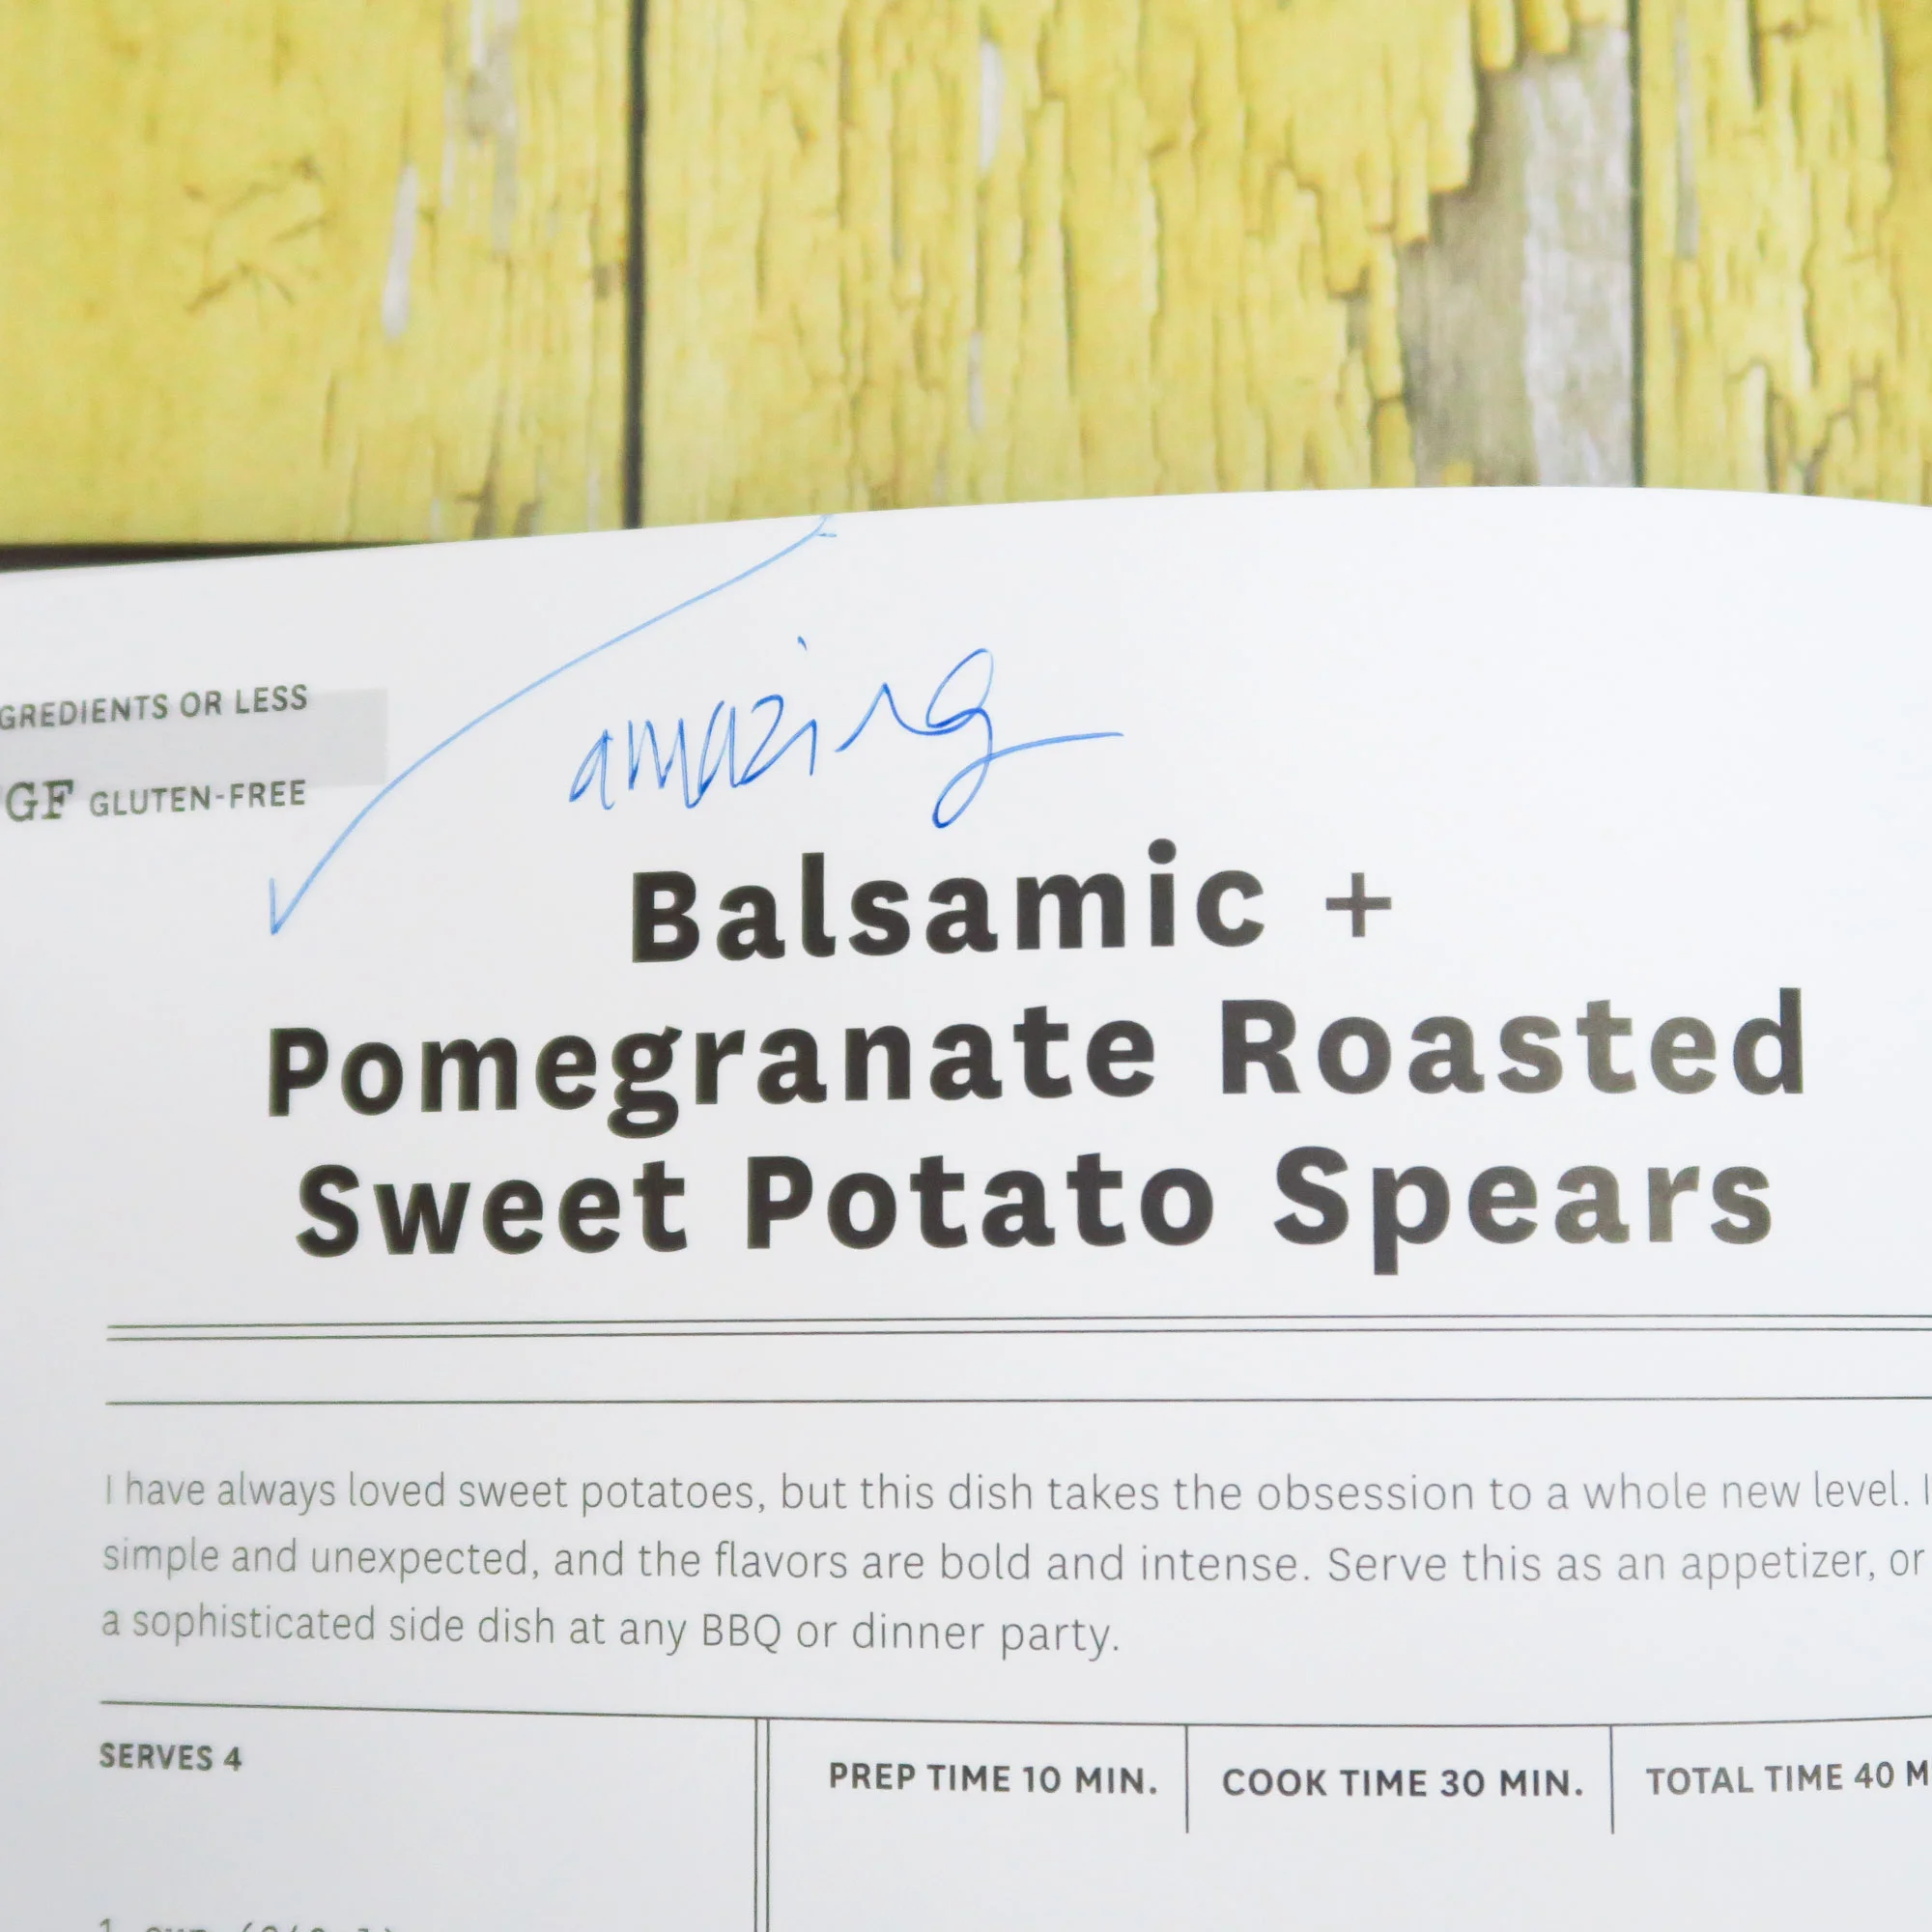 GREDIENTS OR LESS
GF GLUTEN-FREE
amazing
Balsamic +
Pomegranate Roasted
Sweet Potato Spears
I have always loved sweet potatoes, but this dish takes the obsession to a whole new level.
simple and unexpected, and the flavors are bold and intense. Serve this as an appetizer, or
a sophisticated side dish at any BBQ or dinner party.
SERVES 4
PREP TIME 10 MIN.
COOK TIME 30 MIN.
TOTAL TIME 40 M